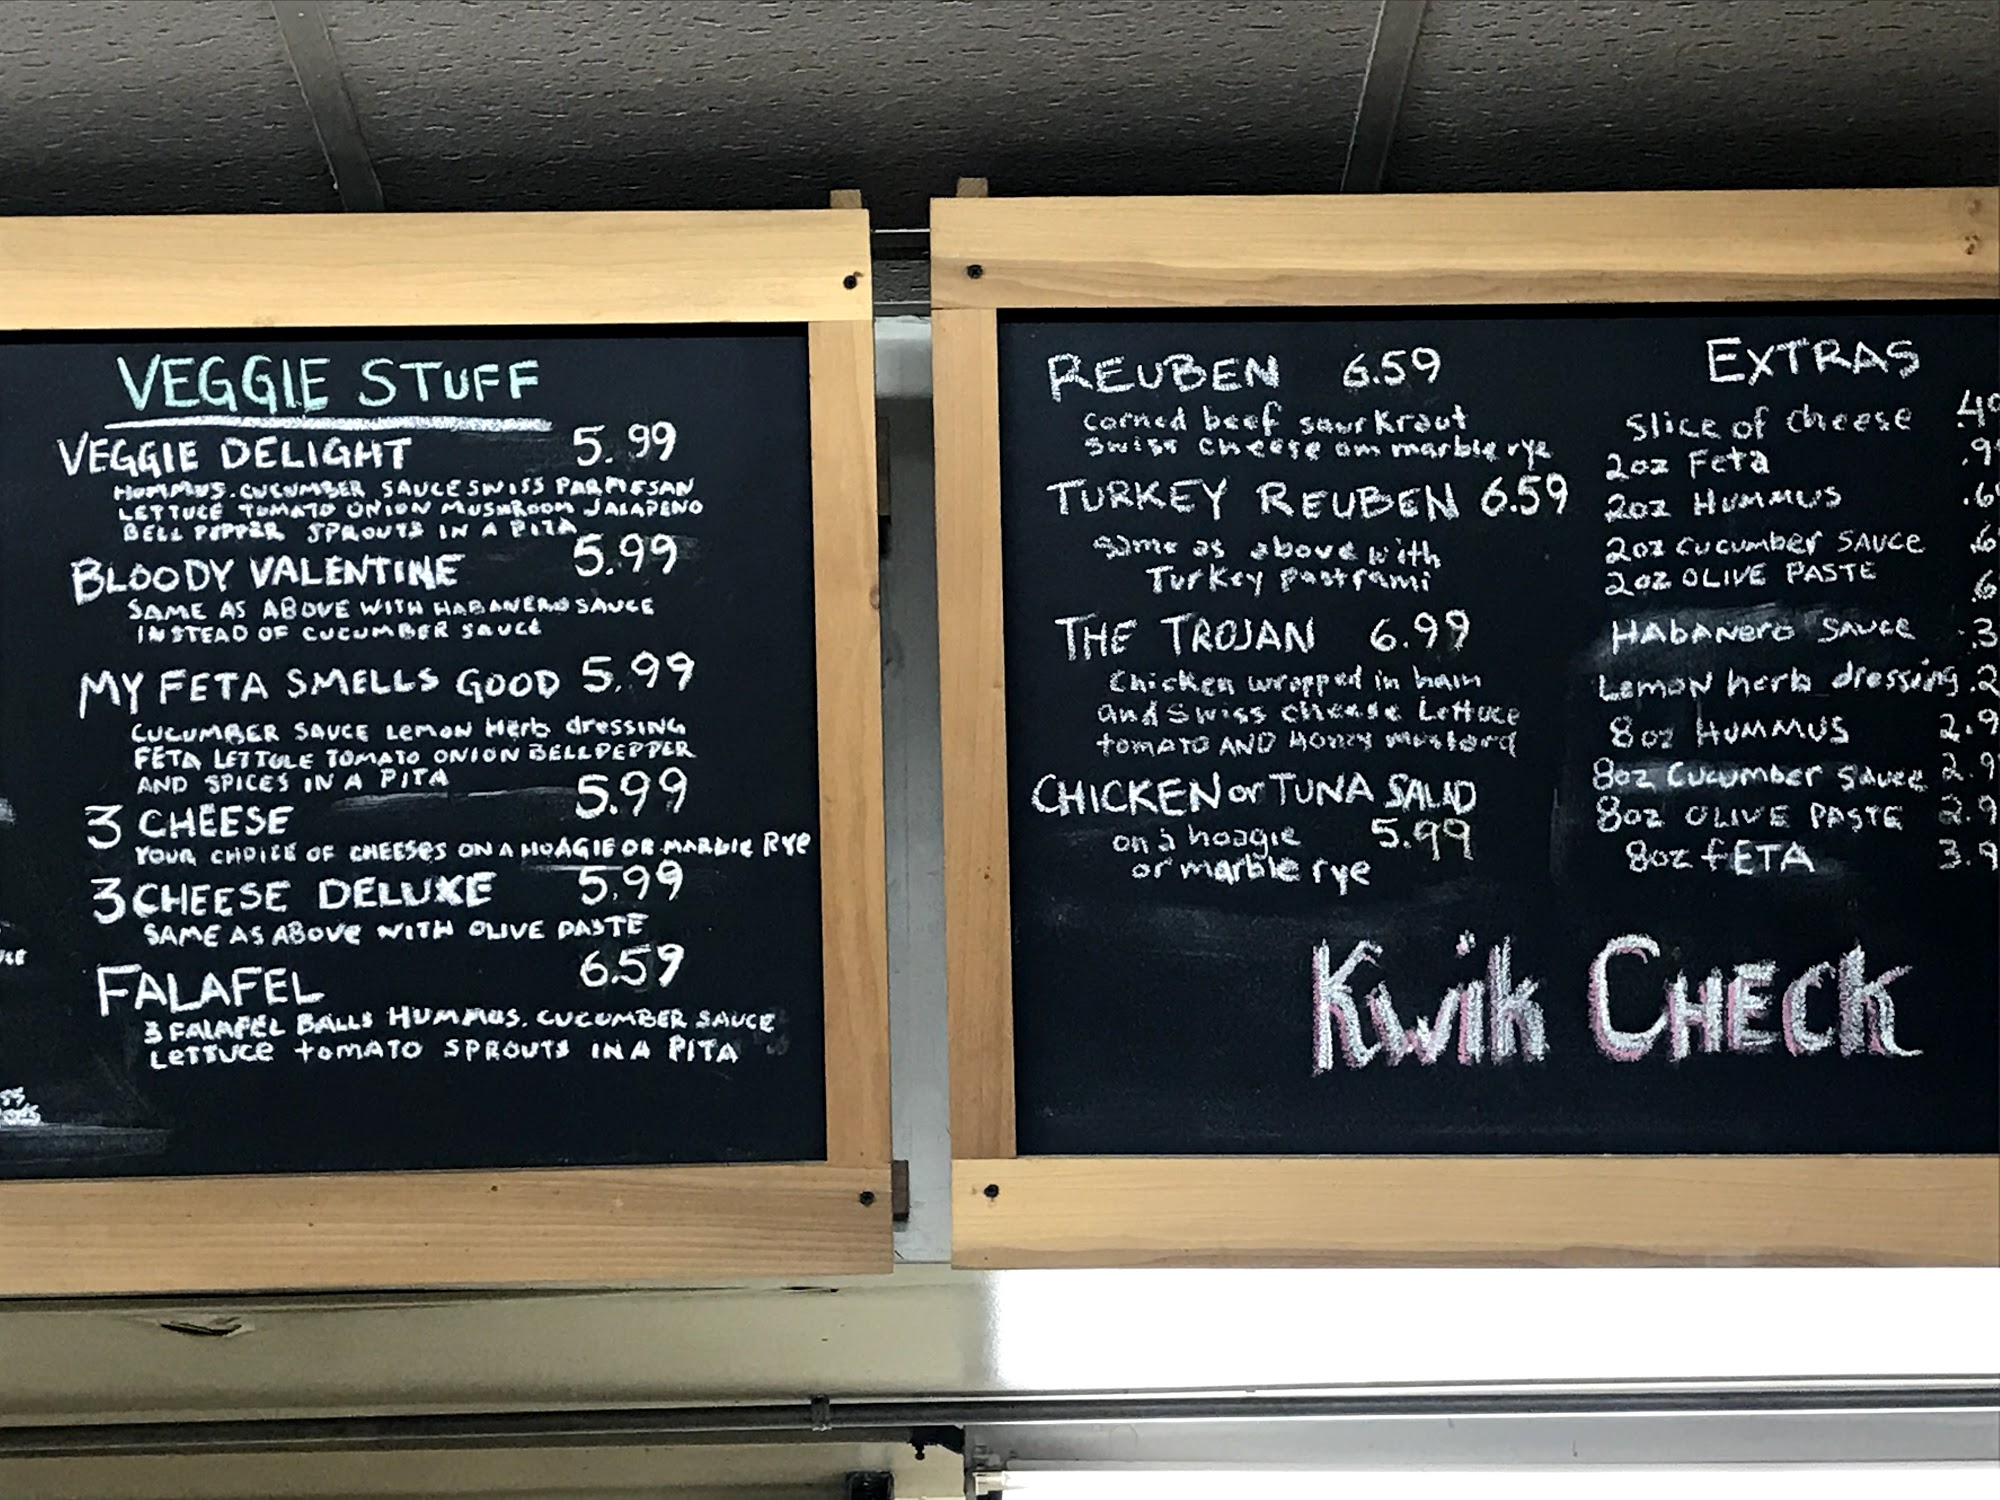 VEGGIE STUFF
VEGGIE DELIGHT 5.99
HUMMUS. CUCUMBER SAUCE SWISS PARMESAN
LETTUCE TOMATO ONION MUSHROOM JALAPENO
BELL PEPPER SPROUTS IN A PITA
BLOODY VALENTINE 5.99
SAME AS ABOVE WITH HABANERO SAUCE
INSTEAD OF CUCUMBER SAUCE
MY FETA SMELLS GOOD 5.99
CUCUMBER SAUCE LEMON Herb dressing
FETA LETTUCE TOMATO ONION BELL PEPPER
AND SPICES IN A PITA
3 CHEESE 5.99
YOUR CHOICE OF CHEESES ON A HOAGIE OR MARBLE RYe
3 CHEESE DELUXE 5.99
SAME AS ABOVE WITH OLIVE PASTE
FALAFEL 6.59
3 FALAFEL BALLS HUMMUS. CUCUMBER SAUCE
LETTUCE tomATO SPROUTS IN A PITA
REUBEN 6.59
corned beef saurkraut
swiss cheese on marble rye
TURKEY REUBEN 6.59
same as above with
Turkey pastrami
THE TROJAN 6.99
Chicken wrapped in ham
and Swiss cheese Lettuce
tomato AND Honey mustard
CHICKEN or TUNA SALAD
on a hoagie 5.99
or marble rye
EXTRAS
Slice of cheese .4
2oz Feta .9
2oz HUMMUS .6
2oz CUCUMBER SAUCE .6
2oz OLIVE PASTE .6
HABANERO SAUCE .3
Lemon herb dressing .2
8oz HUMMUS 2.9
8oz CUCUMBER SAUCE 2.9
8oz OLIVE PASTE 2.9
8oz fETA 3.9
Kwik CHECK